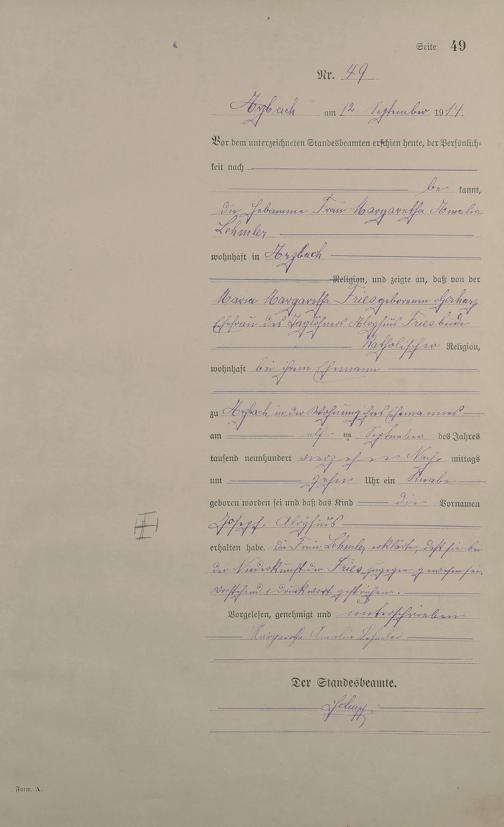 Seite 49
Nr. 49
Arzbach am 12 September 1914.
Vor dem unterzeichneten Standesbeamten erschien heute, der Persönlich-
keit nach
be kannt,
die Hebamme Frau Margaretha Amalia
Lehmler
wohnhaft in Arzbach
Religion, und zeigte an, daß von der
Maria Margaretha Fries geborenen
Ehefrau des Taglöhners Aloysius Fries beide
katholischer Religion,
wohnhaft bei ihrem Ehemann
zu Arzbach in der Wohnung ihres Ehemannes
am elf ten September des Jahres
tausend neunhundert vierzehn Nach mittags
um zehn Uhr ein Knabe
geboren worden sei und daß das Kind die Vornamen
Josef Aloysius
erhalten habe. die Frau Lehmler erklärte, daß sie bei
der Niederkunft der Fries zugegen gewesen sei.
Vorstehend 1 Druckwort gestrichen.
Vorgelesen, genehmigt und unterschrieben
Margaretha Amalia Lehmler
Der Standesbeamte.
Form A.